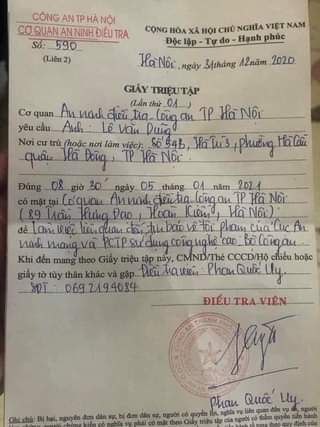 CÔNG AN TP HÀ NỘI
CƠ QUAN AN NINH ĐIỀU TRA
Số: 590
(Liên 2)
CỘNG HÒA XÃ HỘI CHỦ NGHĨA VIỆT NAM
Độc lập - Tự do - Hạnh phúc
Hà Nội, ngày 31 tháng 12 năm 2020
GIẤY TRIỆU TẬP
(Lần thứ 01)
Cơ quan An ninh điều tra - Công an TP Hà Nội
yêu cầu Anh: Lê Văn Dũng
Nơi cư trú (hoặc nơi làm việc): Số 54B, Hà Trì 3, phường Hà Cầu
quận Hà Đông, TP Hà Nội.
Đúng 08 giờ 30 ngày 05 tháng 01 năm 2021
có mặt tại Cơ quan An ninh điều tra Công an TP Hà Nội
(89 Trần Hưng Đạo, Hoàn Kiếm, Hà Nội)
để Làm việc liên quan đến tin báo về tội phạm của Cục An
ninh mạng và PCTP sử dụng công nghệ cao, Bộ Công an.
Khi đến mang theo Giấy triệu tập này, CMND/Thẻ CCCD/Hộ chiếu hoặc
giấy tờ tùy thân khác và gặp Điều tra viên Phan Quốc Uy.
SĐT: 0692194084
ĐIỀU TRA VIÊN
Phan Quốc Uy
Ghi chú: Bị hại, nguyên đơn dân sự, bị đơn dân sự, người có quyền lợi, nghĩa vụ liên quan đến vụ án